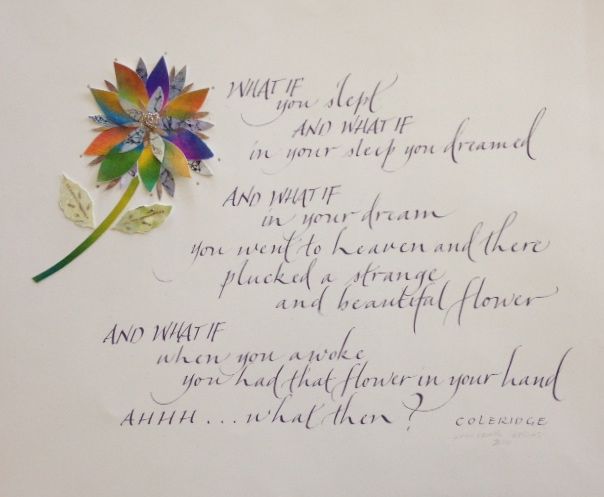 WHAT IF
you slept
AND WHAT IF
in your sleep you dreamed
AND WHAT IF
in your dream
you went to heaven and there
plucked a strange
and beautiful flower
AND WHAT IF
when you awoke
you had that flower in your hand
AHHH... what then?
COLERIDGE